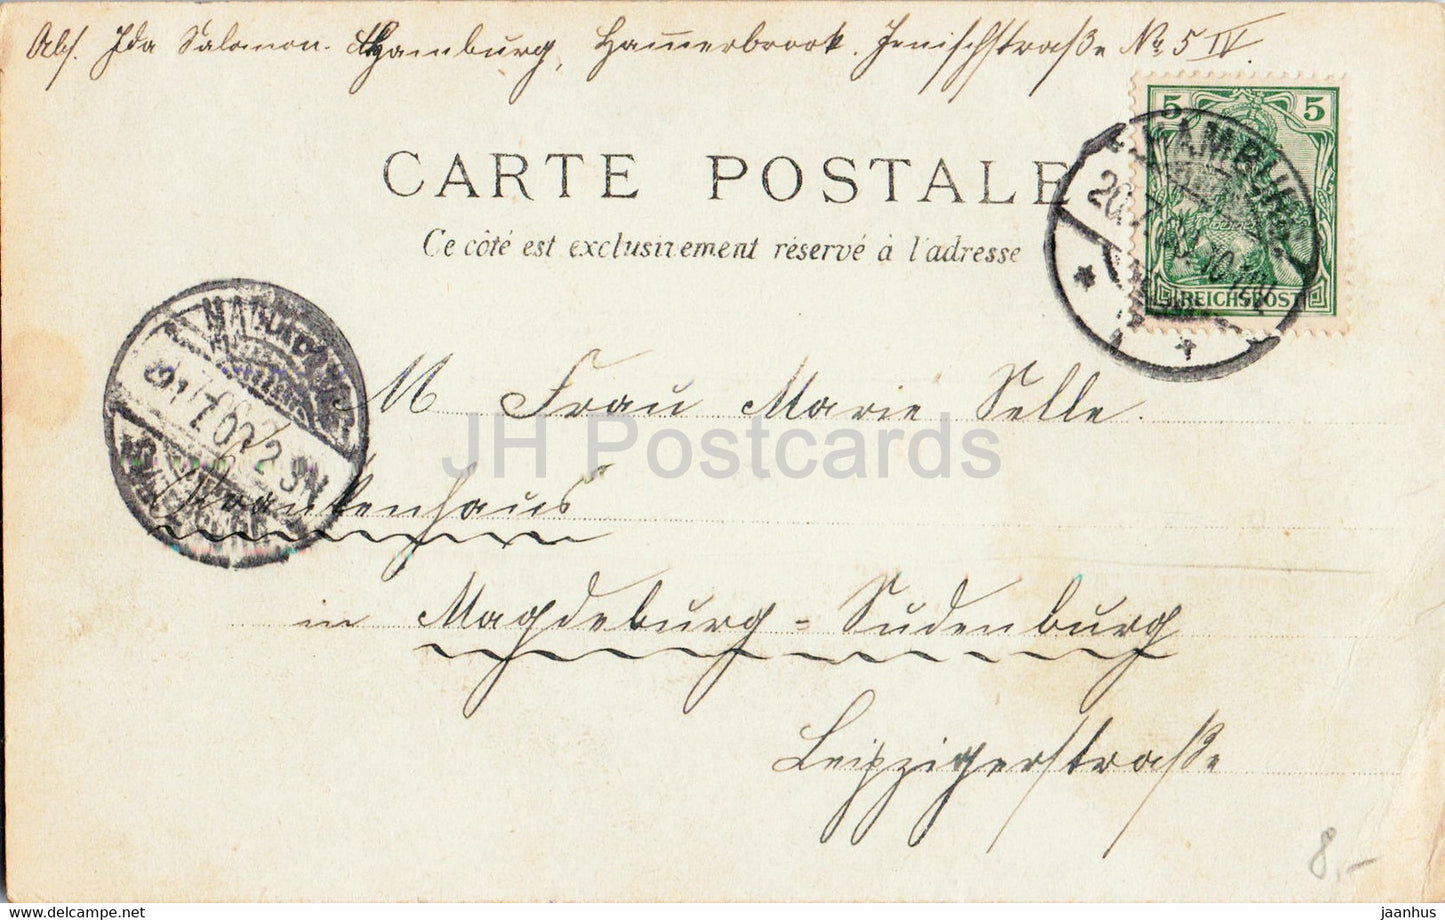 Abs. Ida Salomon. Hamburg, Hammerbrook. Jenischstraße No 5 IV.
CARTE POSTALE
Ce côté est exclusivement réservé à l'adresse
5 5
REICHSPOST
HAMBURG
MAGDEBURG
M Frau Marie Selle.
JH Postcards
Krankenhaus
in Magdeburg-Sudenburg
Leipzigerstraße
8,-
www.delcampe.net
jaanhus